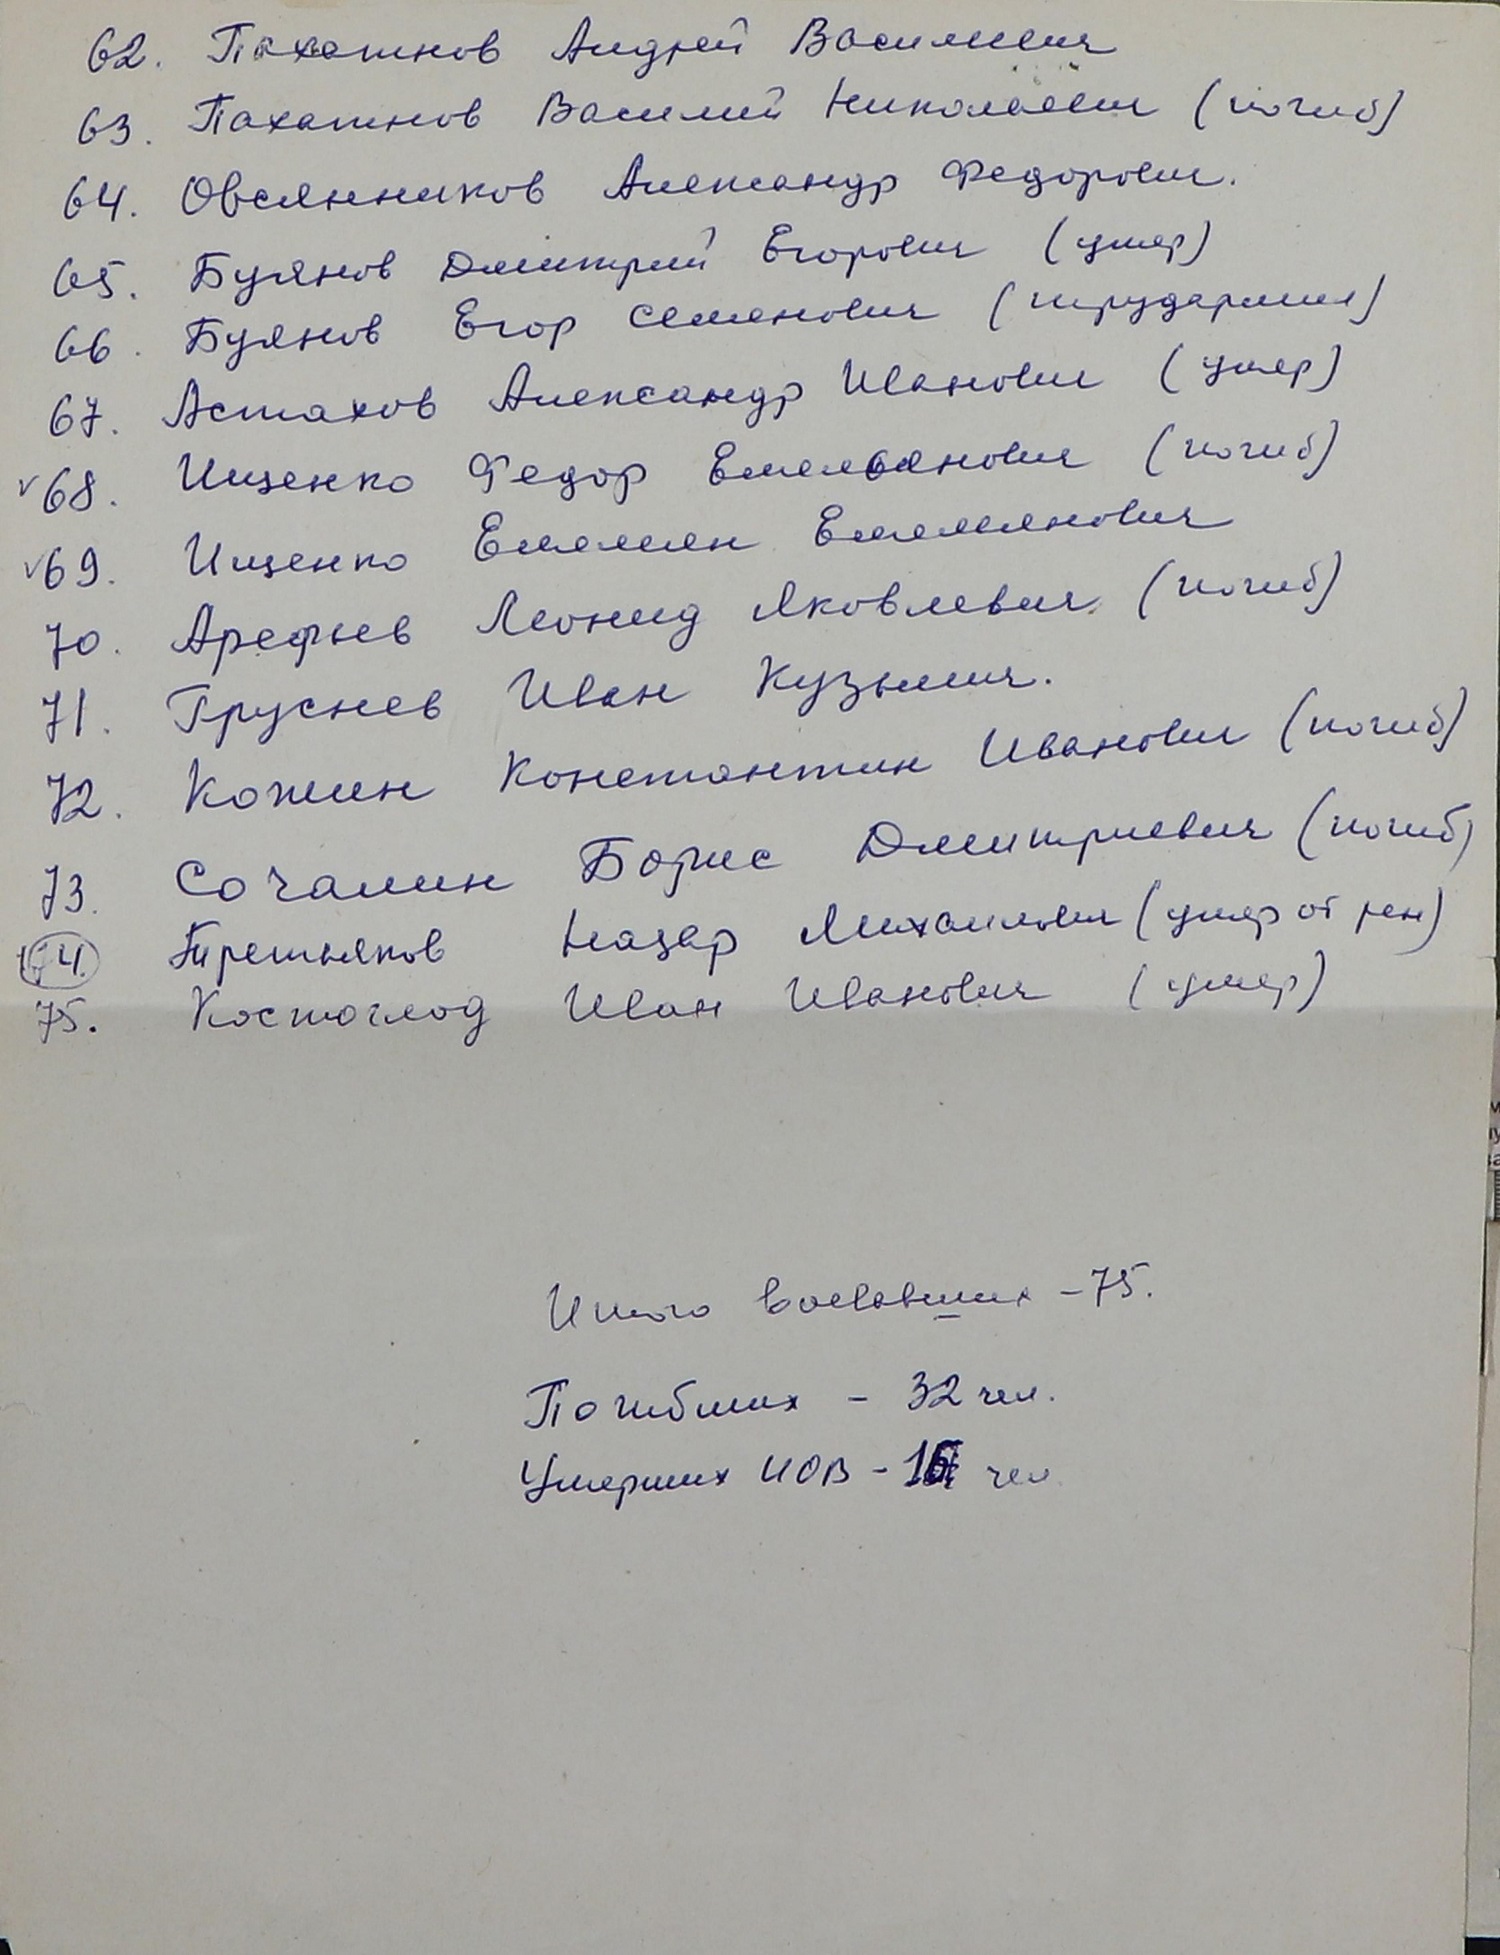 62. Пахатнов Андрей Василиевич
63. Пахатнов Василий Николаевич (погиб)
64. Овсянников Александр Федорович.
65. Буянов Дмитрий Егорович (умер)
66. Буянов Егор Семенович (трудармия)
67. Астахов Александр Иванович (умер)
√68. Ищенко Федор Емельянович (погиб)
√69. Ищенко Емельян Емельянович
70. Арефьев Леонид Яковлевич (погиб)
71. Груснев Иван Кузьмич.
72. Кожин Константин Иванович (погиб)
73. Сочалин Борис Дмитриевич (погиб)
74. Третьяков Назар Михайлович (умер от ран)
75. Костоглод Иван Иванович (умер)
Итого воевавших – 75.
Погибших – 32 чел.
Умерших ИОВ – чел